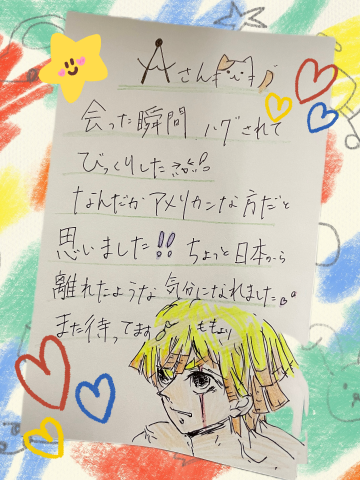 Aさん
会った瞬間、ハグされて
びっくりした
なんだかアメリカンな方だと
思いました!! ちょっと日本から
離れたような気分になれました。
また待ってます ももより